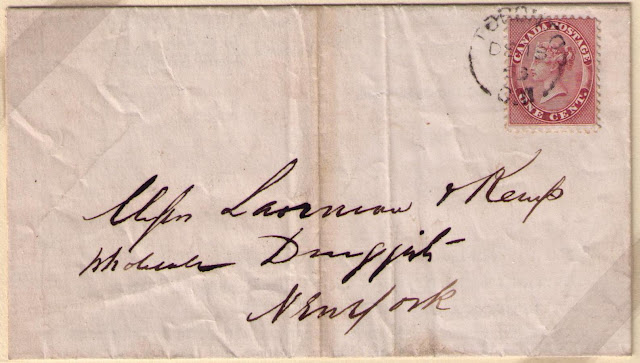 TORON
CANADA POSTAGE
ONE CENT.
Messrs Lanman & Kemp
Wholesale Druggists
New York